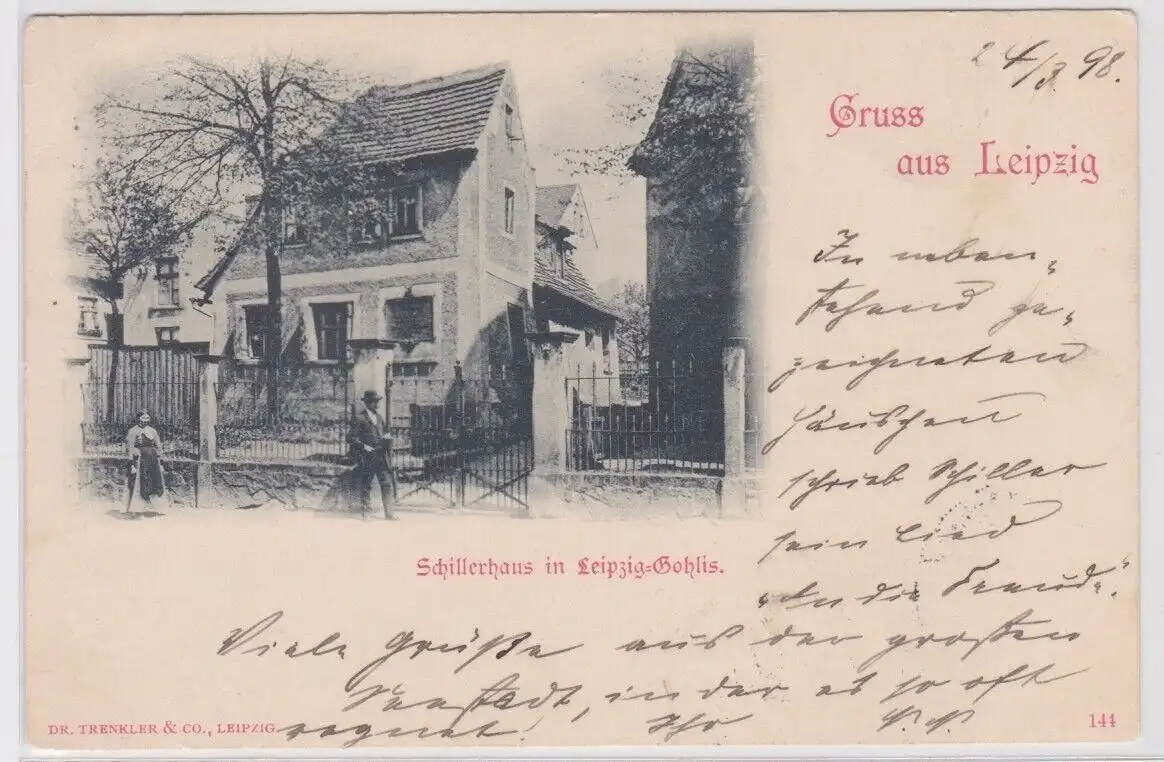 24/3 98.
Gruss
aus Leipzig
In neben-
stehend ge-
zeichneten
Häuschen
schrieb Schiller
sein Lied
„An die Freude“.
Schillerhaus in Leipzig-Gohlis.
Viele Grüße aus der großen
Seestadt, in der es so oft
regnet! Ihr
DR. TRENKLER & CO., LEIPZIG.
144